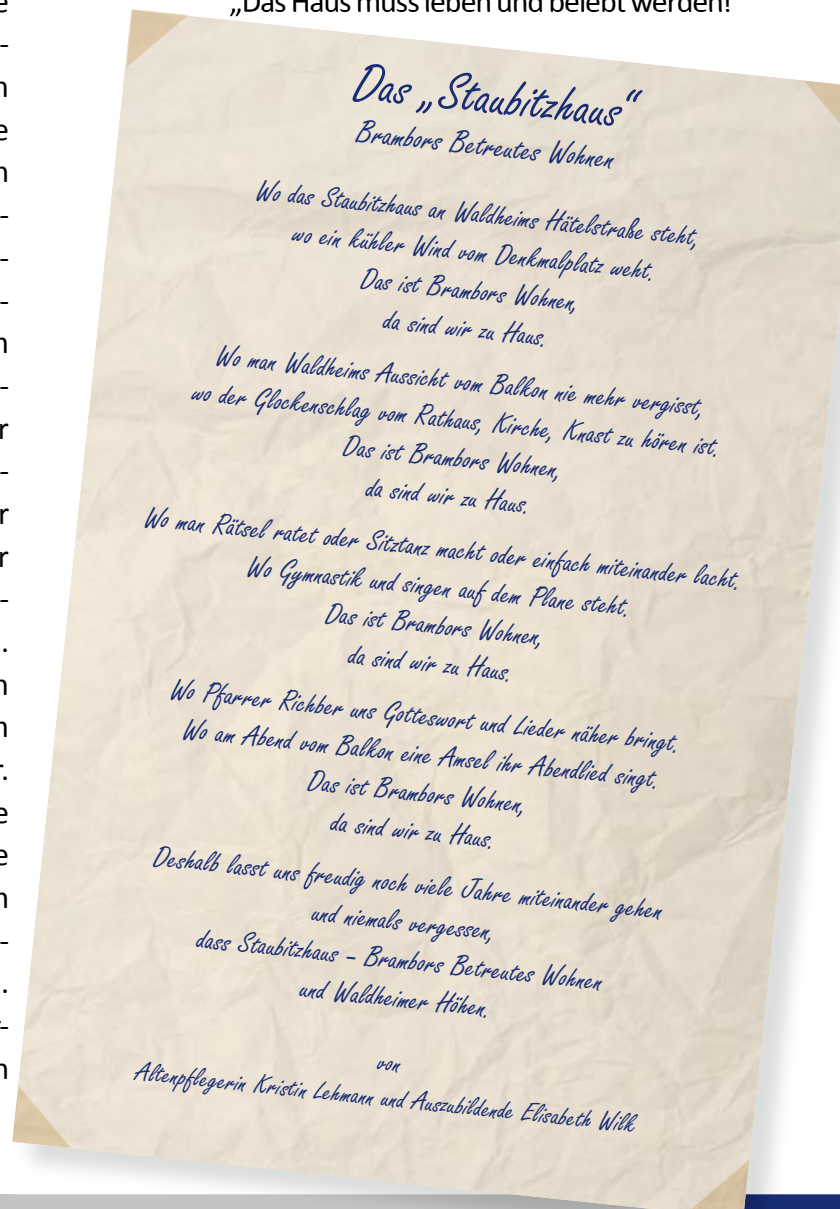 „Das Haus muss leben und belebt werden!
Das „Staubitzhaus“
Brambors Betreutes Wohnen
Wo das Staubitzhaus an Waldheims Hätelstraße steht,
wo ein kühler Wind vom Denkmalplatz weht.
Das ist Brambors Wohnen,
da sind wir zu Haus.
Wo man Waldheims Aussicht vom Balkon nie mehr vergisst,
wo der Glockenschlag vom Rathaus, Kirche, Knast zu hören ist.
Das ist Brambors Wohnen,
da sind wir zu Haus.
Wo man Rätsel ratet oder Sitztanz macht oder einfach miteinander lacht.
Wo Gymnastik und singen auf dem Plane steht.
Das ist Brambors Wohnen,
da sind wir zu Haus.
Wo Pfarrer Richber uns Gotteswort und Lieder näher bringt.
Wo am Abend vom Balkon eine Amsel ihr Abendlied singt.
Das ist Brambors Wohnen,
da sind wir zu Haus.
Deshalb lasst uns freudig noch viele Jahre miteinander gehen
und niemals vergessen,
dass Staubitzhaus – Brambors Betreutes Wohnen
und Waldheimer Höhen.
von
Altenpflegerin Kristin Lehmann und Auszubildende Elisabeth Wilk